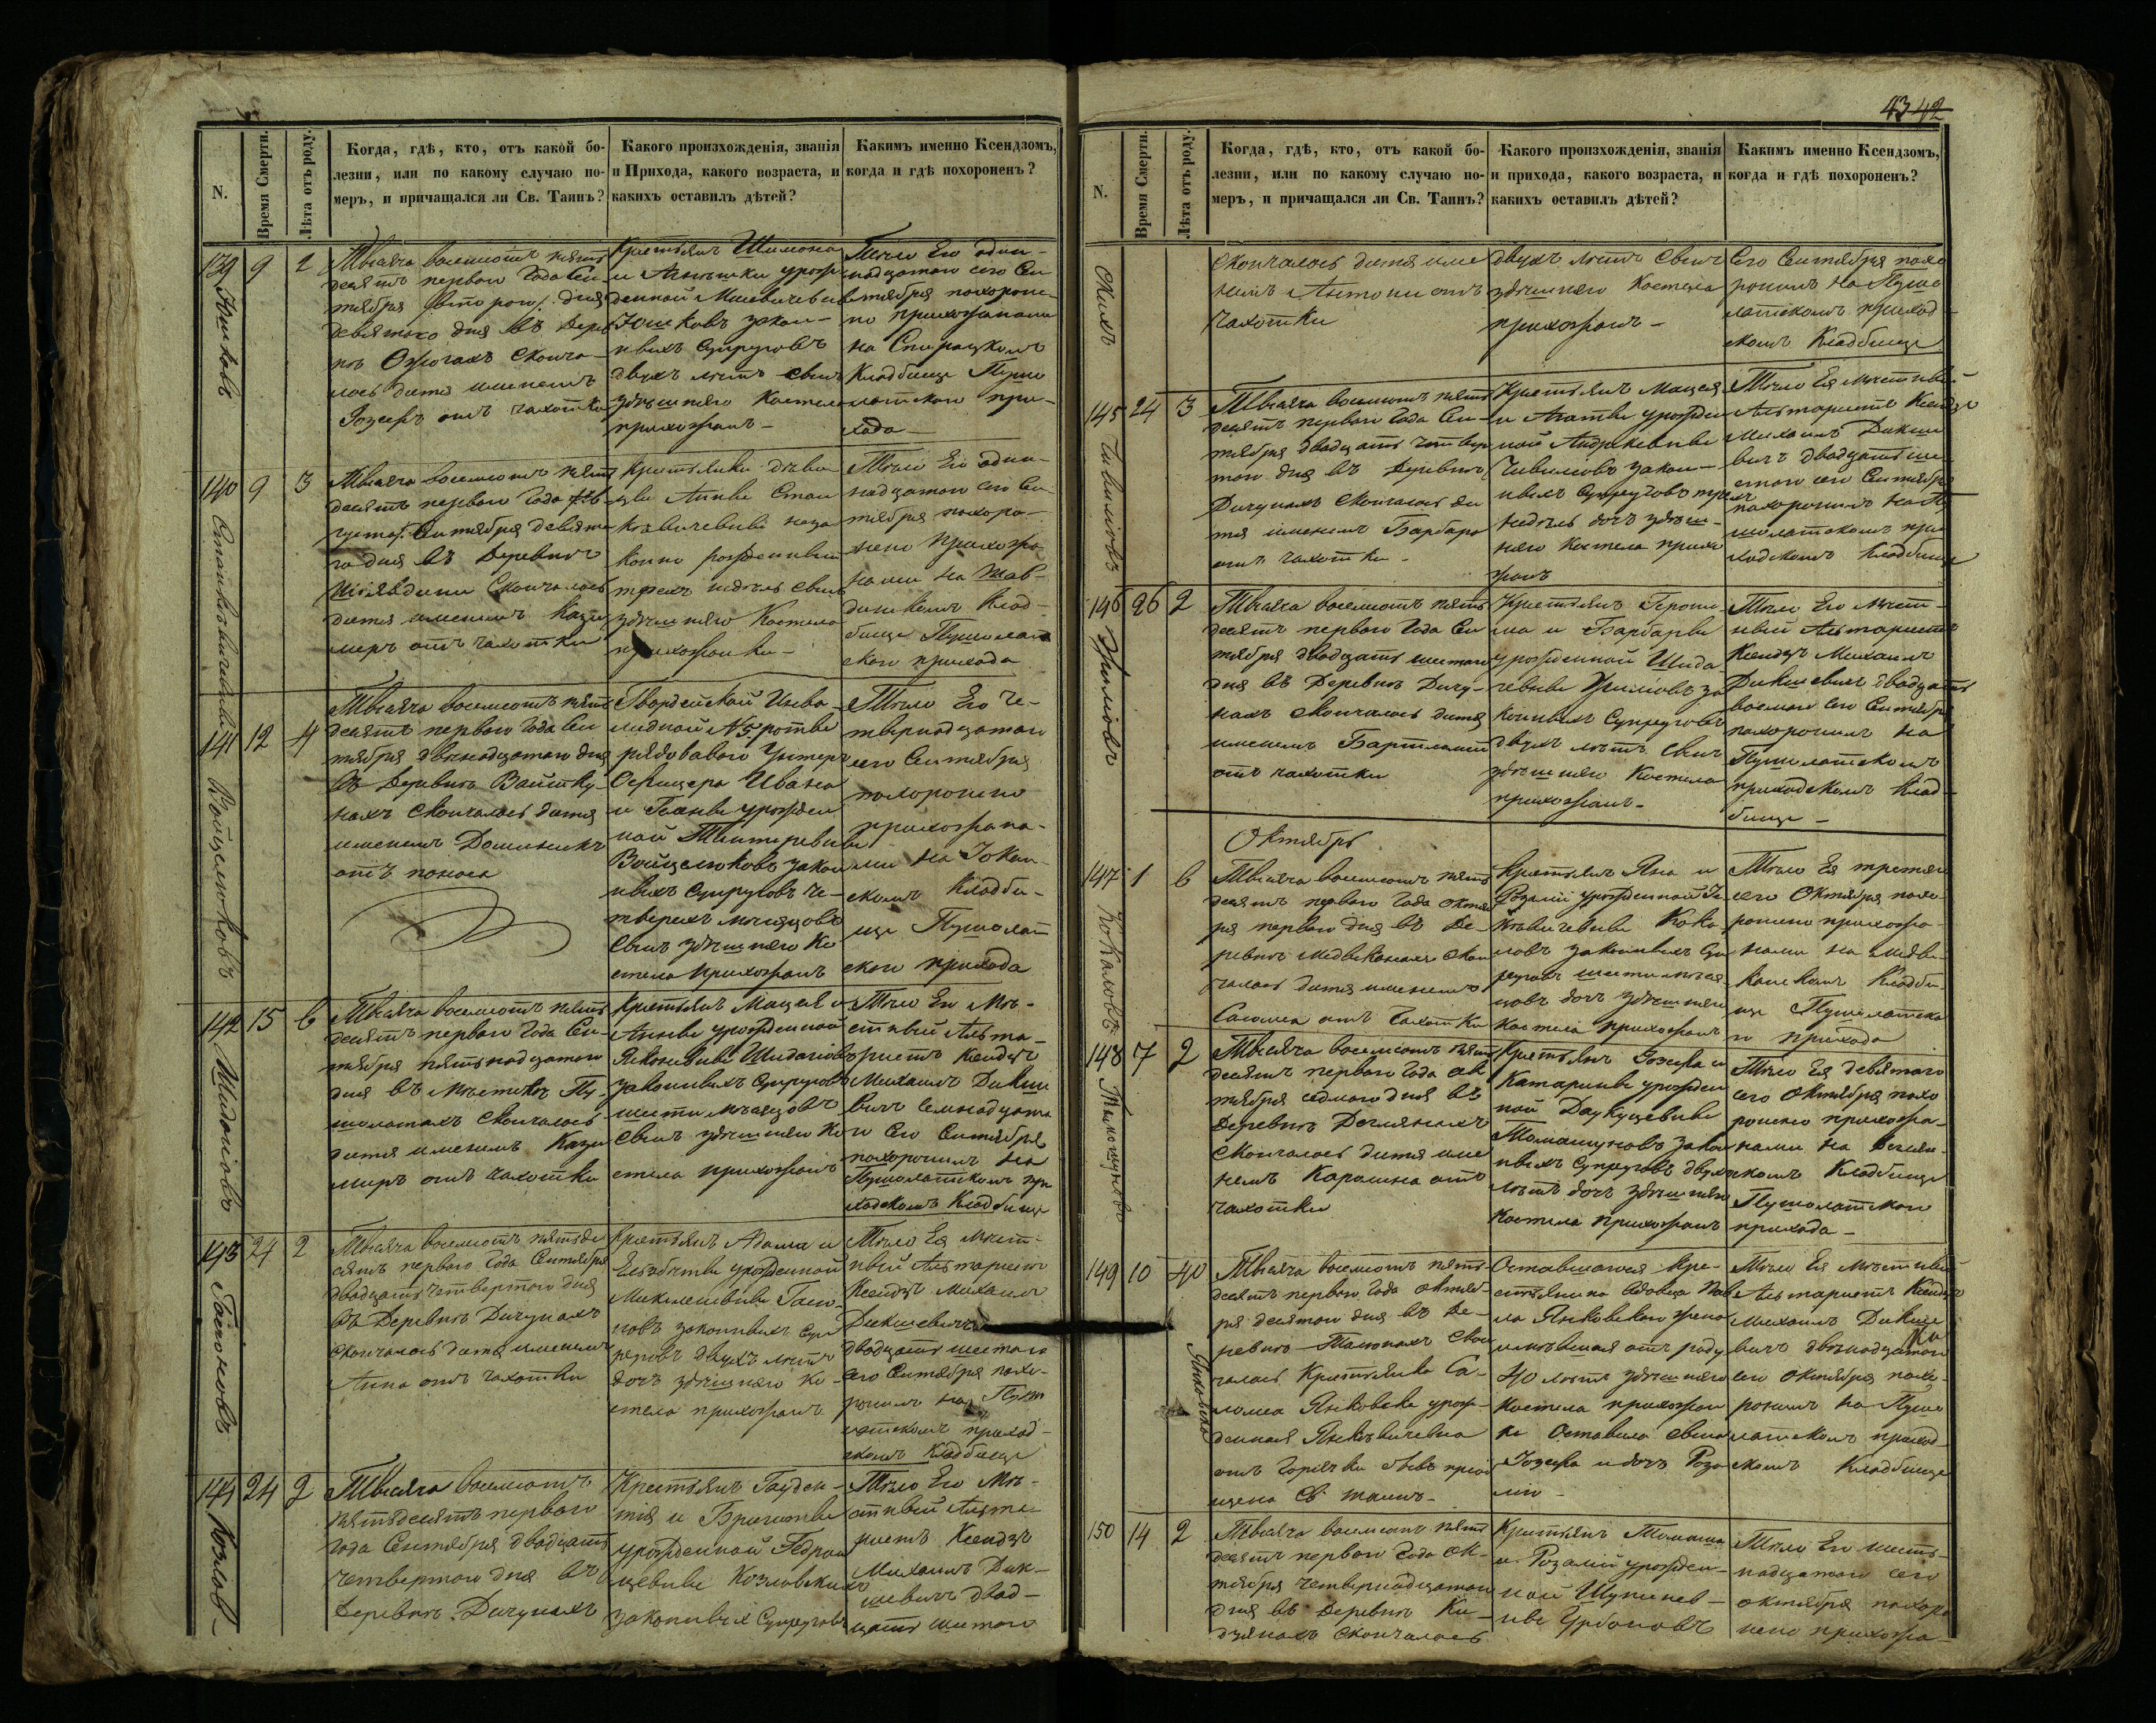 43 42
N.
Время Смерти.
Лѣта отъ роду.
Когда, гдѣ, кто, отъ какой бо-
лезни, или по какому случаю по-
меръ, и причащался ли Св. Таинъ?
Какого произхожденія, званія
и Прихода, какого возраста, и
какихъ оставилъ дѣтей?
Какимъ именно Ксендзомъ,
когда и гдѣ похороненъ?
139 9 2
Тысяча восемсотъ пять
десятъ первого Года Сен
тября второй дня
девятого дня въ Дерев
нѣ Ожогахъ сконча-
лось дитя именемъ
Іозефъ отъ чахотки
Крестьянъ Шимона
и Агнешки урож
денной
Юшковъ закон-
ныхъ Супруговъ
двухъ лѣтъ сынъ
здѣшняго Костела
прихожанъ -
Тѣло Его один-
надцатого сего Сен
тября похороне-
но прихожанами
на
Кладбище Пушо
латского при-
хода
140 9 3
Тысяча восемсотъ пять
десятъ первого Года
Сентября девято
го дня въ Деревнѣ
скончалось
дитя именемъ Кази
меръ отъ чахотки
Крестьянки дѣви
цы Анны Стан
кевичевны неза
конно рожденный
трехъ недѣль сынъ
здѣшняго Костела
прихожанки -
Тѣло Его один-
надцатого сего Се
нтября похоро-
нено прихожа
нами на
Клад-
бище Пушолат
ского прихода
141 12 4
Войцелюковъ
Тысяча восемсотъ пять
десятъ первого Года Сен
тября двенадцатого дня
въ Деревнѣ Вайтку-
нахъ скончалось дитя
именемъ Доминикъ
отъ поноса
Гвардейской Инва-
лидной №5 роты
рядоваго Унтеръ
Офицера Ивана
и урожден
ной
Войцелюковъ закон
ныхъ Супруговъ че-
тверехъ мѣсяцовъ
сынъ здѣшняго Ко
стела прихожанъ
Тѣло Его че-
тырнадцатого
сего Сентября
похоронено
прихожана-
ми на
скомъ Кладби-
ще Пушолат
ского прихода
142 15 6
Шидогіовъ
Тысяча восемсотъ пять
десятъ первого Года Сен-
тября пятьнадцатого
дня въ Мѣстечкѣ Пу-
шолатахъ скончалось
дитя именемъ Кази
миръ отъ чахотки
Крестьянъ Мацея и
Анны урожденной
законныхъ Супруговъ
шести мѣсяцовъ
сынъ здѣшняго Ко
стела прихожанъ
Тѣло Его Мѣ-
стный Альта-
ристъ Ксендзъ
Михаилъ Дикше
вичъ семнадцато
го сего Сентября
похоронилъ на
Пушолатскомъ при
ходскомъ Кладбище
143 24 2
Тысяча восемсотъ пятьде
сятъ первого Года Сентября
двадцать четвертого дня
въ Деревнѣ Дичунахъ
скончалось дитя именемъ
Анна отъ чахотки
Крестьянъ Адама и
Елзбеты урожденной
новъ законныхъ Суп
руговъ двухъ лѣтъ
дочь здѣшняго Ко-
стела прихожанъ
Тѣло Ея Мѣст-
ный Альтаристъ
Ксендзъ Михаилъ
Дикшевичъ
двадцать шестого
сего Сентября похо-
ронилъ на Пушо
латскомъ приход-
скомъ Кладбище
144 24 2
Козлов-
Тысяча восемсотъ
пятьдесятъ первого
Года Сентября двадцать
четвертого дня въ
Деревнѣ Дичунахъ
Крестьянъ Гауден-
тія и Бригиты
урожденной Гедрой
цевны Козловскихъ
законныхъ Супруговъ
Тѣло Его Мѣ-
стный Альта-
ристъ Ксендзъ
Михаилъ Дик-
шевичъ двад-
цать шестого
N.
Время Смерти.
Лѣта отъ роду.
Когда, гдѣ, кто, отъ какой бо-
лезни, или по какому случаю по-
меръ, и причащался ли Св. Таинъ?
Какого произхожденія, званія
и прихода, какого возраста, и
какихъ оставилъ дѣтей?
Какимъ именно Ксендзомъ,
когда и гдѣ похороненъ?
скихъ
скончалось дитя име
немъ Антони отъ
чахотки
двухъ лѣтъ сынъ
здѣшняго Костела
прихожанъ -
сего Сентября похо
ронилъ на Пушо
латскомъ приход-
скомъ Кладбище
145 24 3
Тысяча восемсотъ пять
десятъ первого Года Сен
тября двадцать четвер
того дня въ Деревнѣ
Дичунахъ скончалось ди
тя именемъ Барбара
отъ чахотки -
Крестьянъ Мацея
и Агаты урожден
ной
закон-
ныхъ Супруговъ трехъ
недѣль дочь здѣш-
няго Костела прихо
жанъ
Тѣло Ея мѣстный
Альтаристъ Ксендзъ
Михаилъ Дикше
вичъ двадцать ше
стого сего Сентября
похоронилъ на Пу
шолатскомъ при
ходскомъ Кладбище
146 26 2
Тысяча восемсотъ пять
десятъ первого Года Сен
тября двадцать шестого
дня въ Деревнѣ Дичу-
нахъ скончалось дитя
именемъ Бартломей
отъ чахотки
Крестьянъ Герони
ма и Барбары
урожденной Шида
за
конныхъ Супруговъ
двухъ лѣтъ сынъ
здѣшняго Костела
прихожанъ -
Тѣло Его Мѣст-
ный Альтаристъ
Ксендзъ Михаилъ
Дикшевичъ двадцать
восмого сего Сентября
похоронилъ на
Пушолатскомъ
приходскомъ Клад-
бище -
Октябрь
147 1 6
Кокаловъ
Тысяча восемсотъ пять
десятъ первого Года Октяб
ря первого дня въ Де-
ревнѣ скон
чалось дитя именемъ
Саломея отъ чахотки
Крестьянъ Яна и
Розаліи урожденной
Кока-
ловъ законныхъ Суп
руговъ шести мѣся
цовъ дочь здѣшняго
Костела прихожанъ
Тѣло Ея третяго
сего Октября похо
ронено прихожа-
нами на
Кладби
ще Пушолатско
го прихода
148 7 2
Томашуновъ
Тысяча восемсотъ пять
десятъ первого Года Ок
тября седмого дня въ
Деревнѣ Деглянахъ
скончалось дитя име
немъ Каролина отъ
чахотки
Крестьянъ Іозефа и
Катарины урожден
ной
Томашуновъ закон
ныхъ Супруговъ двухъ
лѣтъ дочь здѣшняго
Костела прихожанъ
Тѣло Ея девятого
сего Октября похо
ронено прихожа-
нами на Деглян-
скомъ Кладбище
Пушолатского
прихода -
149 10 40
Янковска
Тысяча восемсотъ пять-
десятъ первого Года Октяб-
ря десятого дня въ Де-
ревнѣ скон
чалась Крестьянка Са-
ломея Янковска урож-
денная Янкевичевна
отъ горячки бывъ приоб
щена Св. таинъ -
Оставшаяся Кре-
стьянина вдовца Пав
ла Янковского жена
имевшая отъ роду
40 лѣтъ здѣшняго
Костела прихожан
ка оставила сына
Іозефа и дочь Роза
лію -
Тѣло Ея Мѣстный
Альтаристъ Ксендзъ
Михаилъ Дикше
вичъ двѣнадцатого
сего Октября похо-
ронилъ на Пушо
латскомъ приход-
скомъ Кладбище
150 14 2
Тысяча восемсотъ пять
десятъ первого Года Ок-
тября четырнадцатого
дня въ Деревнѣ Ки-
дзянахъ скончалось
Крестьянъ Томаша
и Розаліи урожден-
ной
Урбоновъ
Тѣло Его шесть-
надцатого сего
октября похоро
нено прихожа-